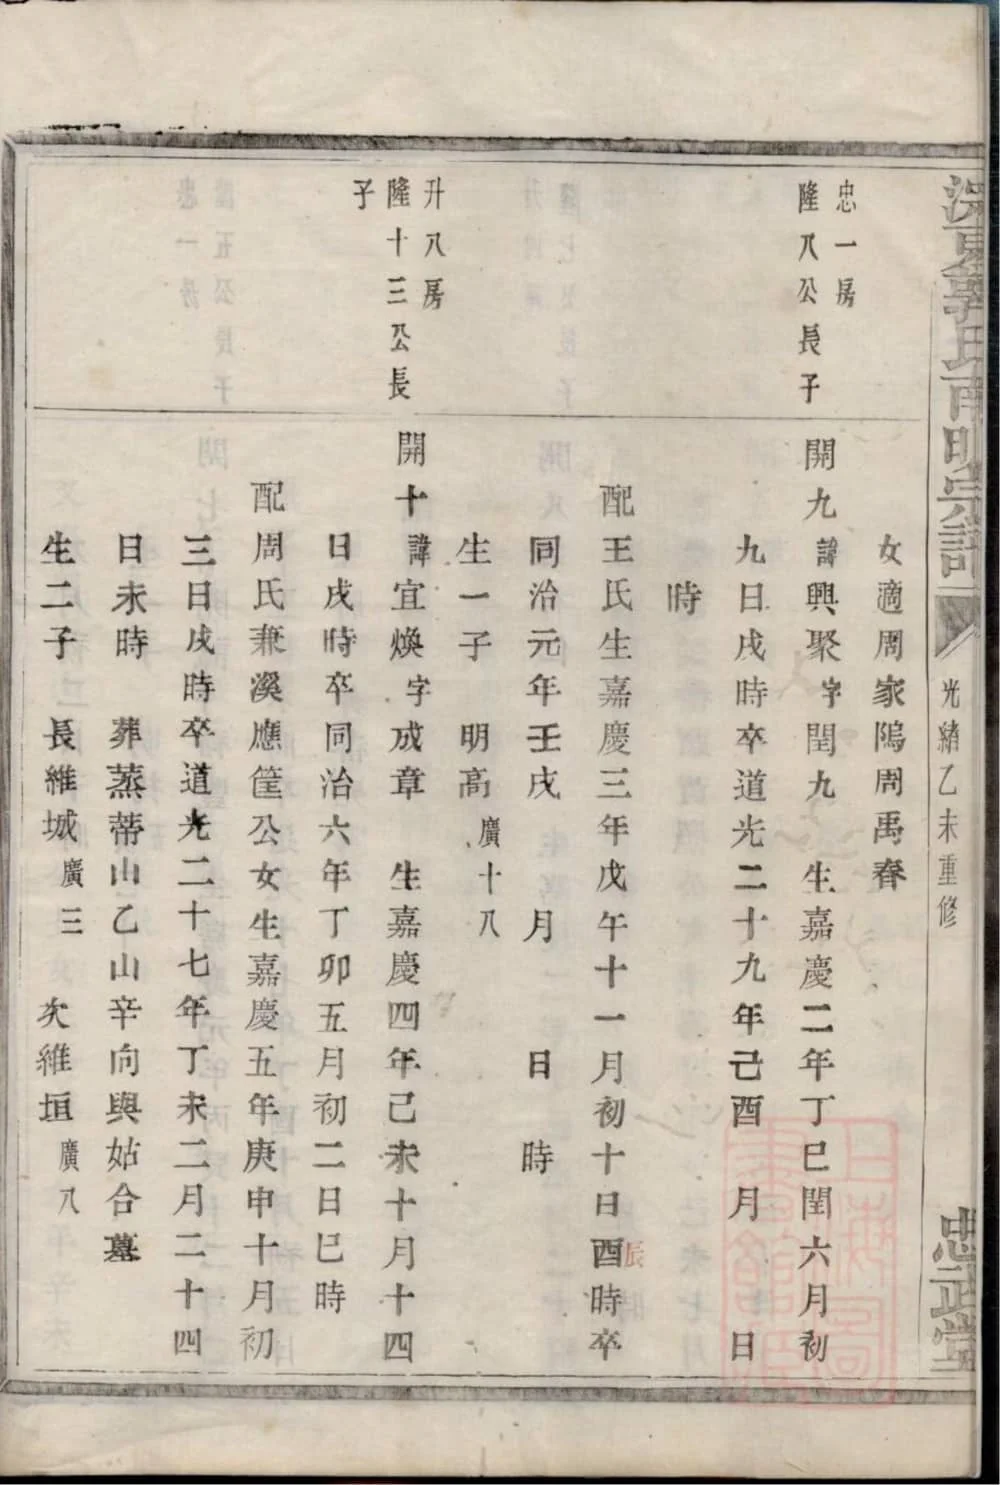 郭氏南明宗譜
光緒乙未重修
忠武堂
女適周家隖周禹春
忠一房
隆八公長子
開九諱興聚字閏九 生嘉慶二年丁巳閏六月初
九日戌時卒道光二十九年己酉 月 日
時
配王氏生嘉慶三年戊午十一月初十日酉時卒
辰
同治元年壬戌 月 日 時
生一子 明高廣十八
升八房
隆十三公長
子
開十諱宜煥字成章 生嘉慶四年己未十月十四
日戌時卒同治六年丁卯五月初二日巳時
配周氏兼溪應筐公女生嘉慶五年庚申十月初
三日戌時卒道光二十七年丁未二月二十四
日未時 葬蒸蒂山乙山辛向與姑合墓
生二子 長維城廣三 次維垣廣八